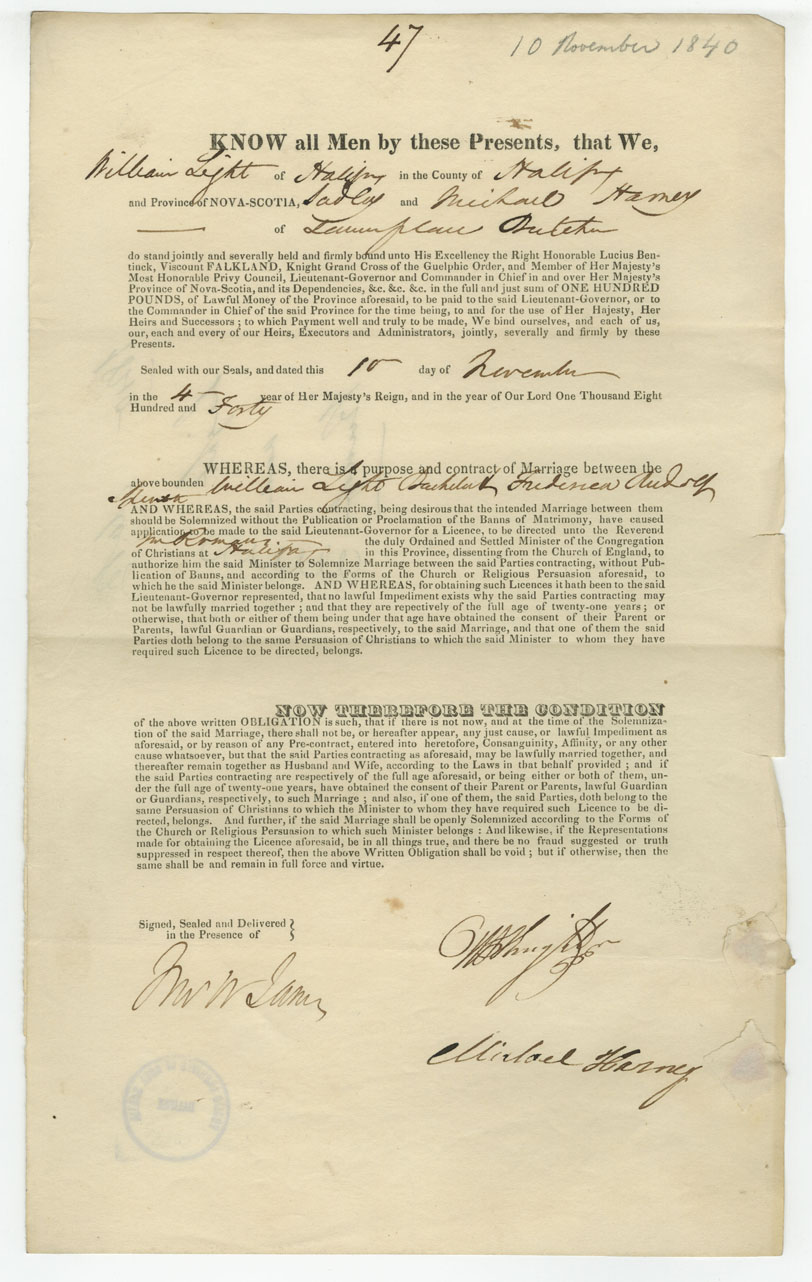 47
10 November 1840
KNOW all Men by these Presents, that We,
William Light of Halifax in the County of Halifax
and Province of NOVA-SCOTIA, and Michael Harney
of same place Butcher
do stand jointly and severally held and firmly bound unto His Excellency the Right Honorable Lucius Ben-
tinck, Viscount FALKLAND, Knight Grand Cross of the Guelphic Order, and Member of Her Majesty's
Most Honorable Privy Council, Lieutenant-Governor and Commander in Chief in and over Her Majesty's
Province of Nova-Scotia, and its Dependencies, &c. &c. &c. in the full and just sum of ONE HUNDRED
POUNDS, of Lawful Money of the Province aforesaid, to be paid to the said Lieutenant-Governor, or to
the Commander in Chief of the said Province for the time being, to and for the use of Her Hajesty, Her
Heirs and Successors ; to which Payment well and truly to be made, We bind ourselves, and each of us,
our, each and every of our Heirs, Executors and Administrators, jointly, severally and firmly by these
Presents.
Sealed with our Seals, and dated this 10 day of November
in the 4 year of Her Majesty's Reign, and in the year of Our Lord One Thousand Eight
Hundred and Forty
WHEREAS, there is a purpose and contract of Marriage between the
above bounden William Light Bachelor & Frederica Rudolf
Spinster
AND WHEREAS, the said Parties contracting, being desirous that the intended Marriage between them
should be Solemnized without the Publication or Proclamation of the Banns of Matrimony, have caused
application to be made to the said Lieutenant-Governor for a Licence, to be directed unto the Reverend
the duly Ordained and Settled Minister of the Congregation
of Christians at Halifax in this Province, dissenting from the Church of England, to
authorize him the said Minister to Solemnize Marriage between the said Parties contracting, without Pub-
lication of Banns, and according to the Forms of the Church or Religious Persuasion aforesaid, to
which he the said Minister belongs. AND WHEREAS, for obtaining such Licences it hath been to the said
Lieutenant-Governor represented, that no lawful Impediment exists why the said Parties contracting may
not be lawfully married together ; and that they are repectively of the full age of twenty-one years ; or
otherwise, that both or either of them being under that age have obtained the consent of their Parent or
Parents, lawful Guardian or Guardians, respectively, to the said Marriage, and that one of them the said
Parties doth belong to the same Persuasion of Christians to which the said Minister to whom they have
required such Licence to be directed, belongs.
NOW THEREFORE THE CONDITION
of the above written OBLIGATION is such, that if there is not now, and at the time of the Solemniza-
tion of the said Marriage, there shall not be, or hereafter appear, any just cause, or lawful Impediment as
aforesaid, or by reason of any Pre-contract, entered into heretofore, Consanguinity, Affinity, or any other
cause whatsoever, but that the said Parties contracting as aforesaid, may be lawfully married together, and
thereafter remain together as Husband and Wife, according to the Laws in that behalf provided ; and if
the said Parties contracting are respectively of the full age aforesaid, or being either or both of them, un-
der the full age of twenty-one years, have obtained the consent of their Parent or Parents, lawful Guardian
or Guardians, respectively, to such Marriage ; and also, if one of them, the said Parties, doth belong to the
same Persuasion of Christians to which the Minister to whom they have required such Licence to be di-
rected, belongs. And further, if the said Marriage shall be openly Solemnized according to the Forms of
the Church or Religious Persuasion to which such Minister belongs : And likewise, if the Representations
made for obtaining the Licence aforesaid, be in all things true, and there be no fraud suggested or truth
suppressed in respect thereof, then the above Written Obligation shall be void ; but if otherwise, then the
same shall be and remain in full force and virtue.
Signed, Sealed and Delivered
in the Presence of
Michael Harney